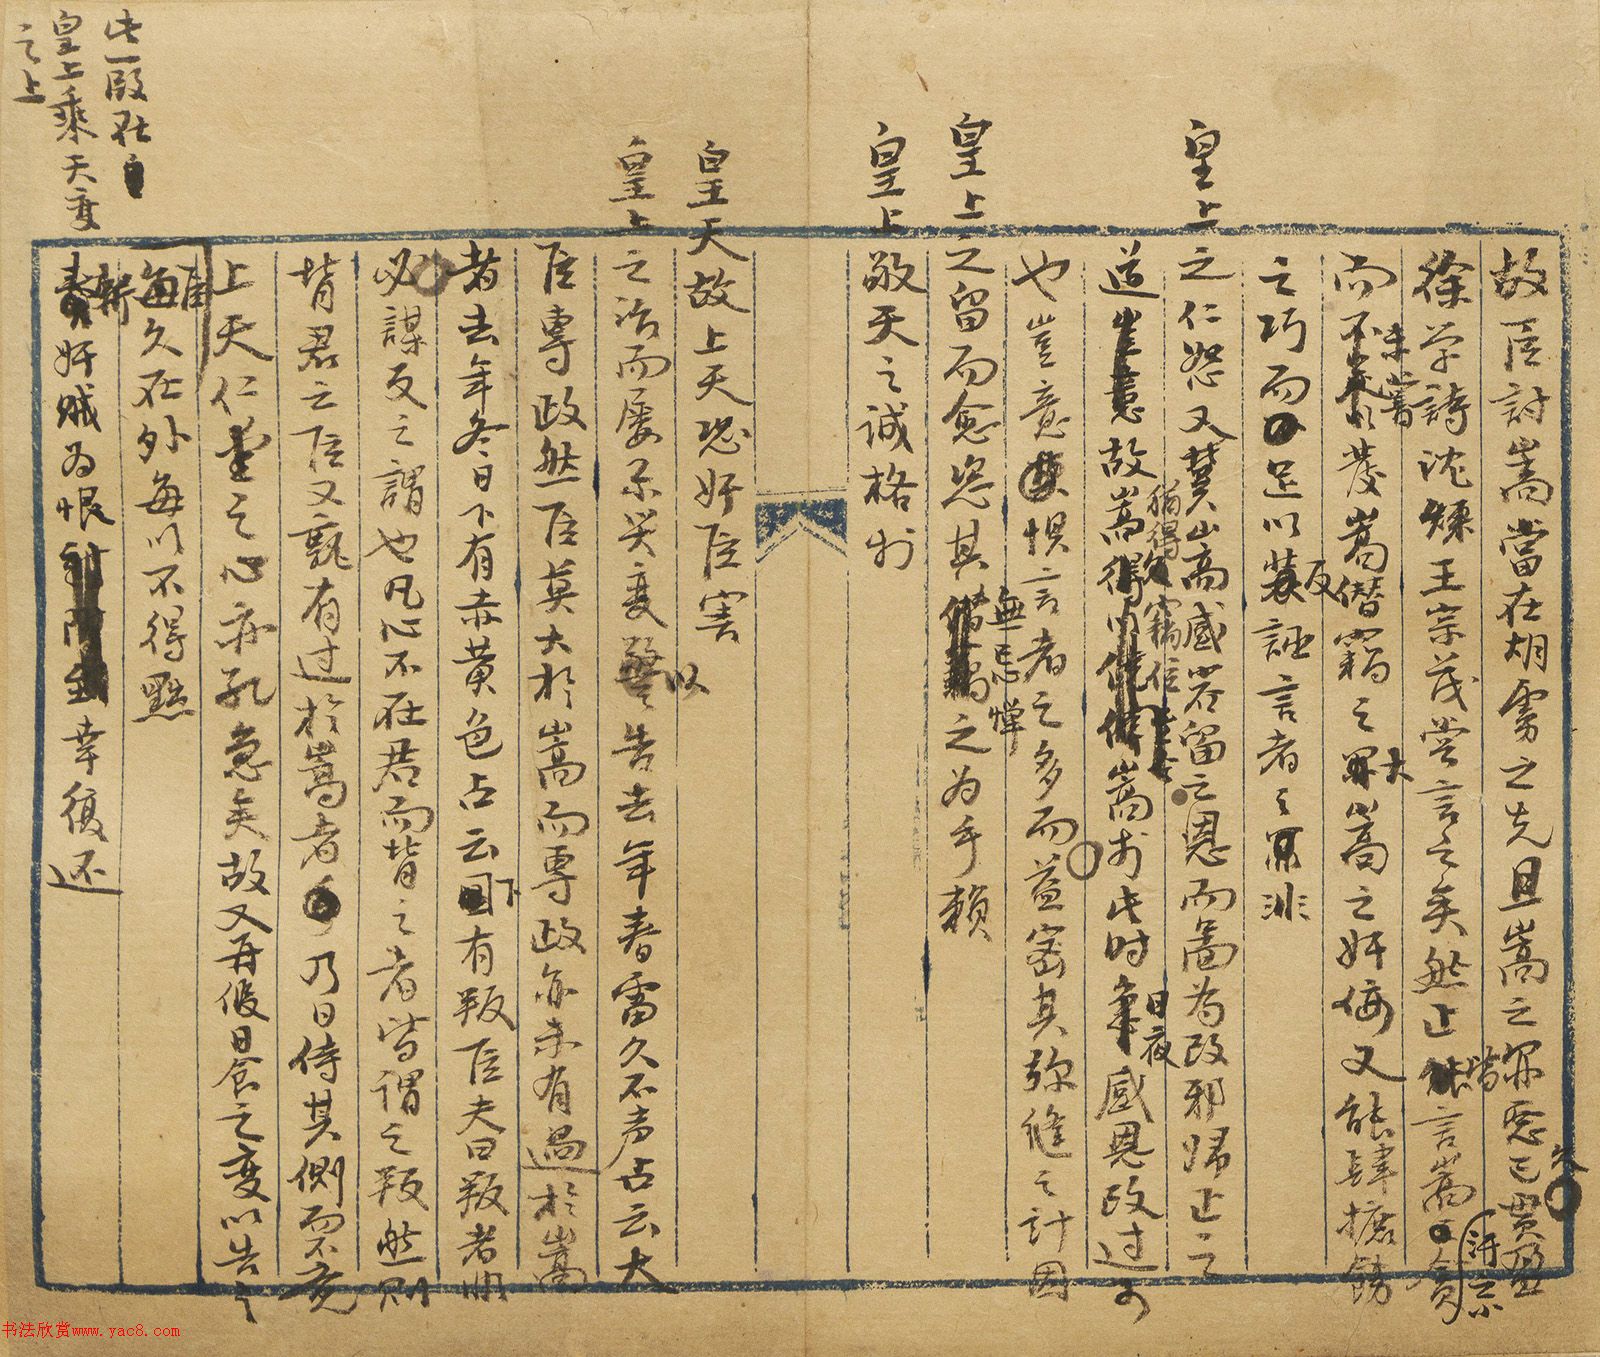 故臣討嵩當在胡虜之先且嵩之罪惡已貫盈
徐学詩沈煉王宗茂嘗言之矣然止皆言嵩貪
而未嘗發嵩僭竊之大罪嵩之奸佞又能肆摭餙
之巧而足以反誣言者之非
皇上之仁恕又冀嵩感容留之恩而圖為改邪歸正之
道故嵩猶得竊位至今嵩於此時日夜感恩改过可
也豈意懼言者之多而益密其弥縫之計因
皇上之留而愈恣其無忌憚之為乎賴
皇上敬天之誠格于
皇天故上天恐奸臣害
皇上之治而屡示災變以警告去年春雷久不声占云大
臣專政然臣莫大於嵩而專政亦未有過於嵩
者去年冬日下有赤黄色占云下有叛臣夫曰叛者明
必謀反之謂也凡心不在君而背之者皆謂之叛然則
背君之臣又孰有过於嵩者乃日侍其側而不覚
上天仁愛之心亦孔急矣故又再假日食之变以告之
臣每久在外每以不得點
斬奸賊為恨幸復还
此一段在
皇上乘天变
之上
书法欣赏www.yac8.com